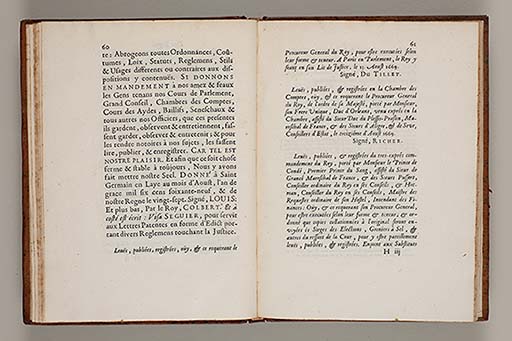 60
te: Abrogeons toutes Ordonnances, Coû-
tumes, Loix, Statuts, Reglemens, Stils
& Usages differens ou contraires aux dis-
positions y contenuës. SI DONNONS
EN MANDEMENT à nos amez & feaux
les Gens tenans nos Cours de Parlement,
Grand Conseil, Chambres des Comptes,
Cours des Aydes, Baillifs, Senéchaux &
tous autres nos Officiers, que ces presentes
ils gardent, observent & entretiennent, fas-
sent garder, observer & entretenir; & pour
les rendre notoires à nos sujets, les fassent
lire, publier, & enregistrer. CAR TEL EST
NOSTRE PLAISIR. Et afin que ce soit chose
ferme & stable à toûjours, Nous y avons
fait mettre nostre Seel. DONNE' à Saint
Germain en Laye au mois d'Aoust, l'an de
grace mil six cens soixante-neuf, & de
nostre Regne le vingt-sept. Signé, LOUIS:
Et plus bas, Par le Roy, COLBERT. Et à
costé est écrit: Visa SEGUIER, pour servir
aux Lettres Patentes en forme d'Edict por-
tant divers Reglemens touchant la Justice.
Leuës, publiées, registrées, oüy, & ce requerant le
61
Procureur General du Roy, pour estre executées selon
leur forme & teneur. A Paris en Parlement, le Roy y
seant en son Lit de Justice, le 13. Aoust 1669.
Signé, DU TILLET.
Leuës, publiées, & registrées en la Chambre des
Comptes, oüy, & ce requerant le Procureur General
du Roy, de l'ordre de sa Majesté, porté par Monsieur,
son Frere Unique, Duc d'Orleans, venu exprés en la
Chambre, assisté du Sieur Du Plessis-Praslin, Ma-
reschal de France, & des Sieurs d'Aligre, & de Seve,
Conseillers d'Estat, le treiziéme d'Aoust 1669.
Signé, RICHER.
Leuës, publiées, & registrées du tres-exprés com-
mandement du Roy, porté par Monsieur le Prince de
Condé, Premier Prince du Sang, assisté du Sieur de
Grancé Mareschal de France, & des Sieurs Poncet,
Conseiller ordinaire du Roy en ses Conseils, &
man, Conseiller du Roy en ses Conseils, Maistre des
Requestes ordinaire de son Hostel, Intendant des Fi-
nances: Oüy, & ce requerant son Procureur General,
pour estre executées selon leur forme & teneur, & or-
donné que copies collationnées à l'original seront en-
voyées és Sieges des Elections, Greniers à Sel, &
autres du ressort de la Cour, pour y estre pareillement
leuës, publiées, & registrées. Enjoint aux Substituts
H iij